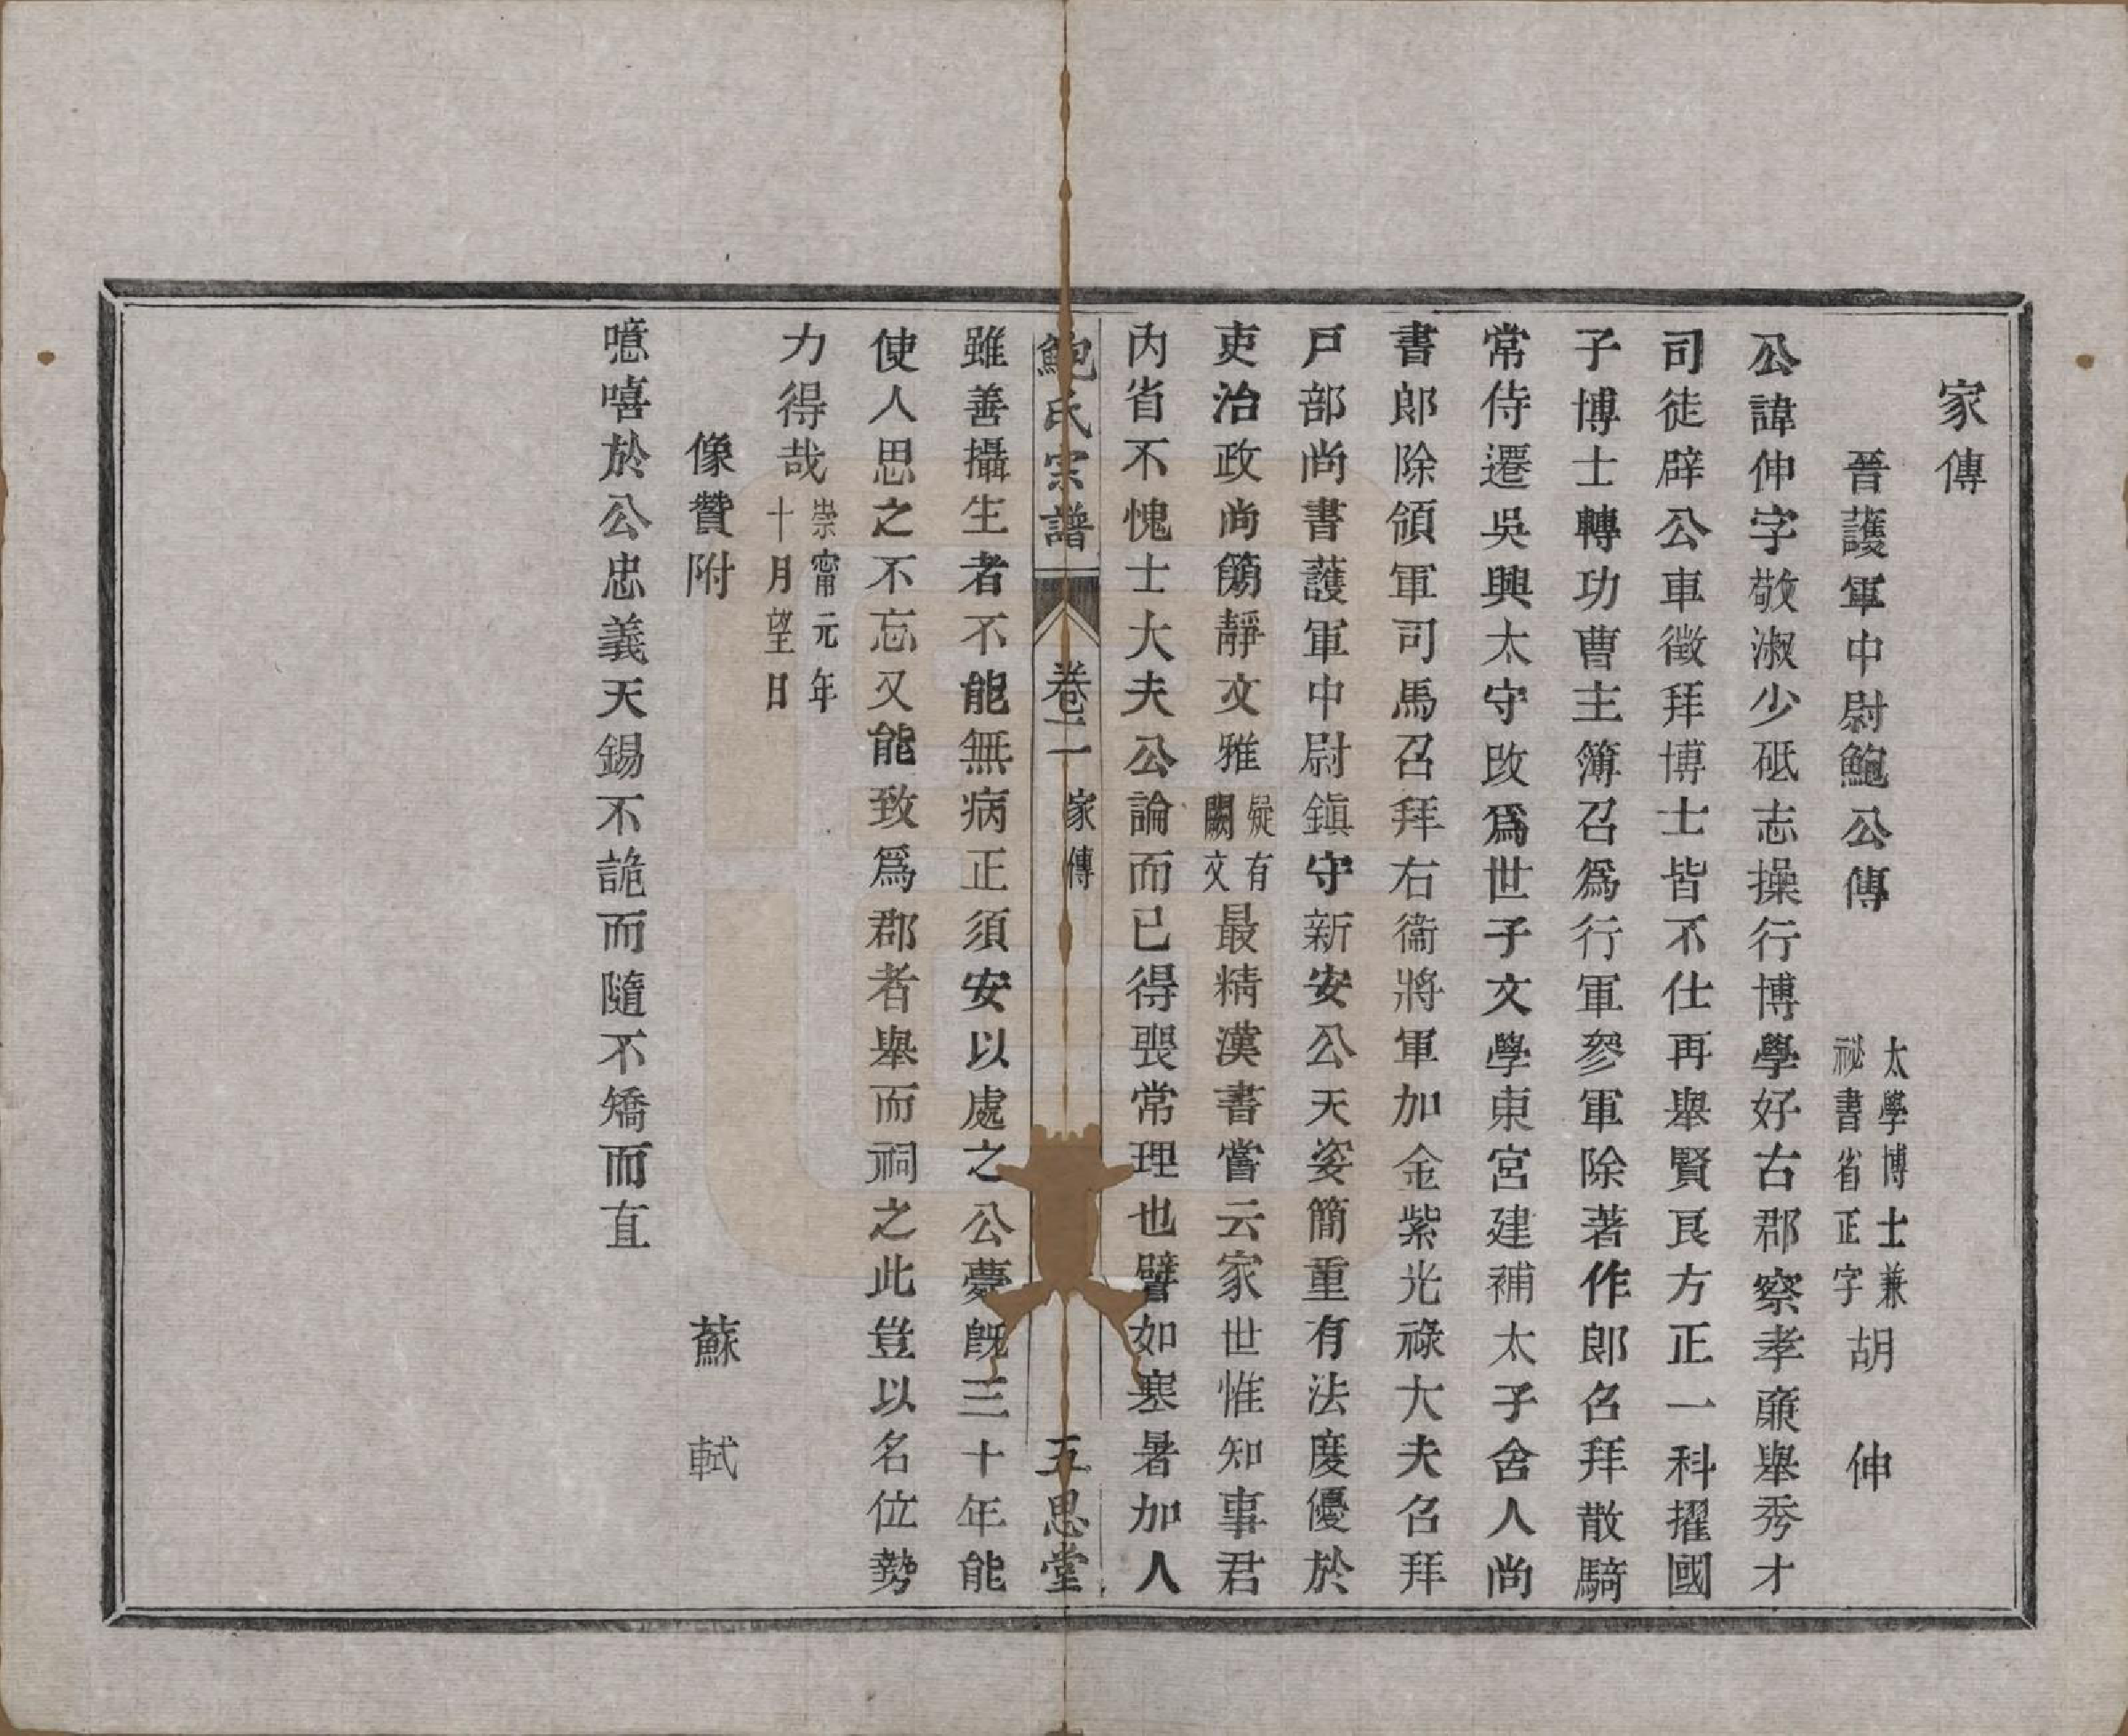 家傳
晉護軍中尉鮑公傳 太學博士兼祕書省正字 胡 伸
公諱伸字敬淑少砥志操行博學好古郡察孝廉舉秀才
司徒辟公車徵拜博士皆不仕再舉賢良方正一科擢國
子博士轉功曹主簿召爲行軍參軍除著作郎召拜散騎
常侍遷吳興太守改爲世子文學東宮建補太子舍人尚
書郎除領軍司馬召拜右衞將軍加金紫光祿大夫召拜
戸部尚書護軍中尉鎭守新安公天姿簡重有法度優於
吏治政尚簡靜文雅 疑有闕文 最精漢書嘗云家世惟知事君
內省不愧士大夫公論而已得喪常理也譬如寒暑加人
鮑氏宗譜 卷二 家傳 一 五思堂
雖善攝生者不能無病正須安以處之公薨旣三十年能
使人思之不忘又能致爲郡者舉而祠之此豈以名位勢
力得哉 崇甯元年十月望日
像贊附 蘇 軾
噫嘻於公忠義天錫不詭而隨不矯而直